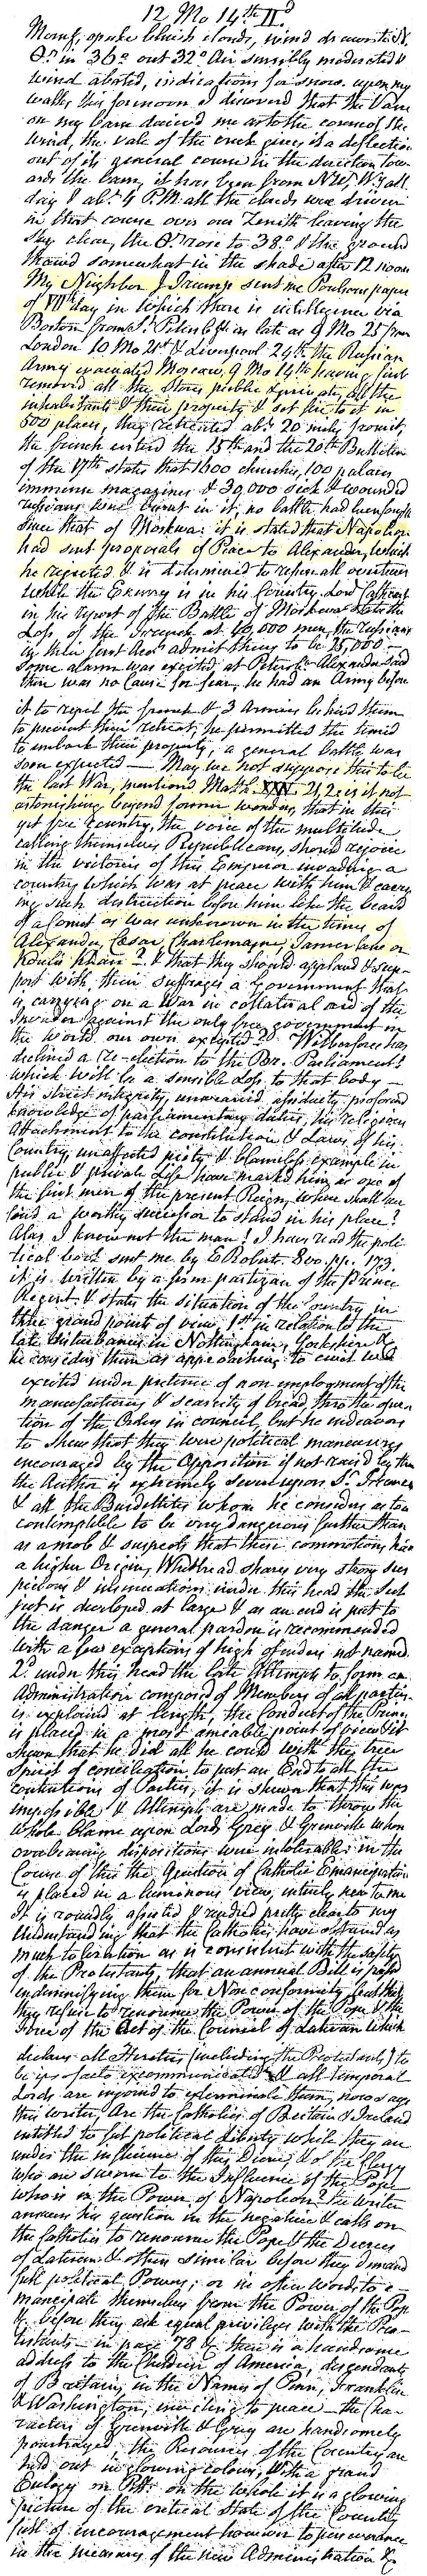 12 Mo 14th II.d
Morng. opake bluish clouds, wind dr.
O.r in 36° out 32° Air sensibly moderated &
wind abated, indications for snow. upon my
walk, this forenoon I discovered that the Vane
on my barn deceived me as to the course of the
wind, the vale of the creek gives it a deflection
out of its general course in the direction tow-
ards the barn, it has been from NW. Wy all
day & abt. 4 P.M. all the clouds were driven
in that course over our Zenith leaving the
sky clear, the O.r rose to 38.° & the ground
thawed somewhat in the shade after 12 noon
My Neighbor J Trump sent me Poulsons paper
of VIIth day in which there is intelligence via
Boston from St. Petersbg as late as 9 Mo 25 from
London 10 Mo 21st & Liverpool 24th the Russian
Army evacuated Moscow, 9 Mo 14th having first
removed all the Stores public & private, all the
inhabitants & their property & set fire to it in
500 places, they retreated abt. 20 miles from it,
the french entred the 15th and the 20th Bulletin
of the 17th states that 1600 churches, 100 palaces
immense magazines & 30,000 sick & wounded
russians were burnt in it, no battle had been fought
since that of Moskwa: it is stated that Napoleon
had sent proposals of Peace to Alexander, which
he rejected & is determined to refuse all overtures
while the Enemy is in his Country. Lord Cathcart
in his report of the Battle of Moskwa states the
Loss of the french at 40,000 men, the russians
in their first Acct. admit theirs to be 25,000 —
Some alarm was excited at Petersbg. Alexander said
there was no Cause for fear, he had an Army before
it to repel the french & 3 Armies behind them
to prevent their retreat, he permitted the timid
to embark their property, a general battle was
soon expected — May we not suppose this to be
the last War, mentioned Math. XXIV. 21, 2. is it not
astonishing beyond former wonders, that in this
yet free Country, the voice of the multitude
calling themselves Republicans, should rejoice
in the victories of this Emperor invading a
country which was at peace with him & carry
ing such distruction before him like the beard
of a Comet as was unknown in the times of
Alexander, Cæsar, Charlemagne, Tamerlane or
Kouli Khan? & that they should applaud & sup-
port with their suffrages a Government that
is carrying on a War in collateral aid of the
Invader against the only free government in
the World our own excepted? Wilberforce has
declined a re-election to the Br. Parliament!
which will be a sensible Loss to that body —
His strict integrity, unwearied assiduity, profound
knowledge of parliamentary duties, his religious
Attachment to the constitution & Laws of his
Country, unaffected piety & blameless example in
public & private Life have marked him as one of
the first men of the present Reign, where shall we
find a worthy successor to stand in his place?
Alas, I know not the man! I have read the poli
tical book sent me by E Roberts 8vo. pp. 173.
it is written by a firm partizan of the Prince
Regent & states the situation of the Country in
three grand points of view, 1st in relation to the
late disturbances in Nottingham, Yorkshire &c
he considers them as approaching to civil War
excited under pretence of non employment of the
manufacturers & scarcity of bread, thro the opera
tion of the Orders in council, but he endeavors
to shew that they were political maneuvres
encouraged by the Opposition if not raised by them
the Author is extremely severe upon Sr. Frances
& all the Burdettites whom he considers as too
contemptible to be very dangerous further than
as a mob & suspects that these commotions have
a higher Origin, Whitbread shares very strong sus
picions & insinuations under this head the Sub
ject is developed at large & as an end is put to
the danger a general pardon is recommended
with a few exceptions of high offenders not named
2d. under this head the late Attempts to form an
Administration composed of Members of all parties
is explained at length, the Conduct of the Prince
is placed in a most amicable point of view & it
shewn that he did all he could with the true
Spirit of conciliation, to put an End to all the
contentions of Parties, it is shewn that this was
impossible & Attempts are made to throw the
whole blame upon Lords Grey & Grenville whose
overbearing dispositions were intolerable in the
Course of this the Question of Catholic Emancipation
is placed in a luminous view, intirely new to me
It is roundly asserted & rendred pretty clear to my
Understanding that the Catholics have obtained as
much toleration as is consistent with the safety
of the Protestants, that an annual Bill is passed
indemnifying them for Nonconformity but that
they refuse to renounce the Power of the Pope & the
force of the Act of the Council of Lateran which
declares all Heretics (including the Protestants) to
be ipso facto excommunicated & all temporal
Lords are injoined to exterminate them, now says
this writer, Are the Catholics of Britain & Ireland
entitled to full political Liberty while they are
under the influence of this Decree & of the Clergy
who are sworn to the Influence of the Pope
who is in the Power of Napoleon? The writer
answers his question in the negative & calls on
the Catholics to renounce the Pope & the Decrees
of Lateran & others similar before they demand
full political Powers; or in other words, to e-
mancipate themselves from the Power of the Pope
&c. before they ask equal privileges with the Pro-
testants — in page 78 &c. there is a handsome
address to the Children of America, descendants
of Britain, in the Names of Penn, Franklin
& Washington, inviting to peace — the Cha-
racters of Grenville & Grey are handsomely
pourtrayed, the Resources of the Country are
held out in glowing colours, with a grand
Eulogy on Pitt. on the whole it is a glowing
picture of the critical State of the Country
full of encouragement however to perseverance
in the measures of the new Administration &c